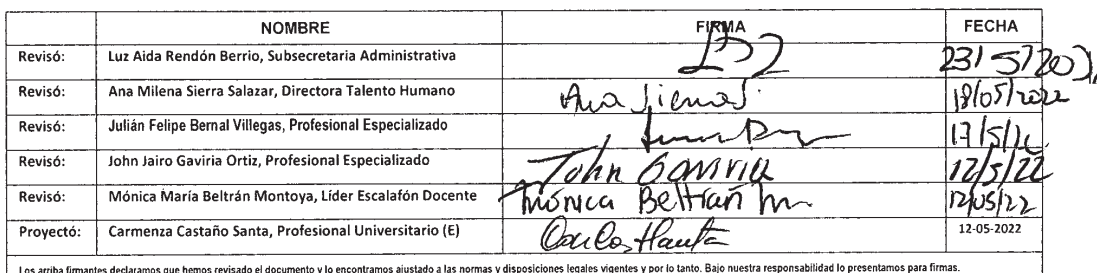 NOMBRE FIRMA FECHA
Revisó: Luz Aida Rendón Berrio, Subsecretaria Administrativa
Revisó: Ana Milena Sierra Salazar, Directora Talento Humano Ana Sierra S. 18/05/2022
Revisó: Julián Felipe Bernal Villegas, Profesional Especializado
Revisó: John Jairo Gaviria Ortiz, Profesional Especializado John Gaviria 12/5/22
Revisó: Mónica María Beltrán Montoya, Líder Escalafón Docente Mónica Beltrán m 12/05/22
Proyectó: Carmenza Castaño Santa, Profesional Universitario (E) 12-05-2022
Los arriba firmantes declaramos que hemos revisado el documento y lo encontramos ajustado a las normas y disposiciones legales vigentes y por lo tanto. Bajo nuestra responsabilidad lo presentamos para firmas.